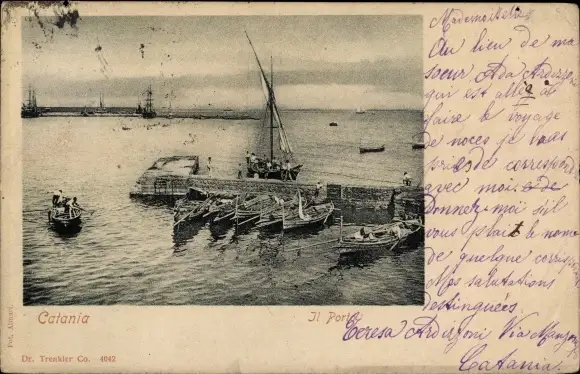 Mademoiselle,
Au lieu de ma
soeur Ada Ardizzoni
qui est allée à
faire le voyage
de noces je vous
prie de correspondre
avec moi e de
Donnez-moi s'il
vous plait le nom
de quelque corresp
Mes salutations
destinguées
Teresa Ardizzoni Via Manzoni
Catania.
Catania
Il Porto
Fot. Alinari.
Dr. Trenkler Co. 4042